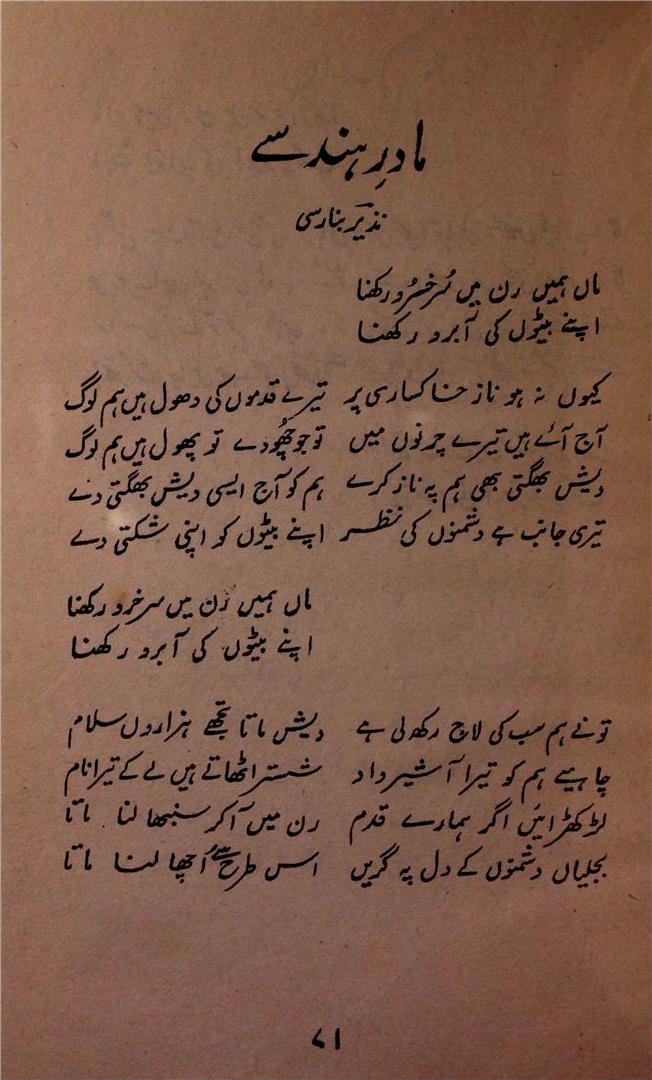 مادرِ ہند سے
نذیر بنارسی
ماں ہمیں رن میں سُرخرُو رکھنا
اپنے بیٹوں کی آبرو رکھنا
کیوں نہ ہو ناز خاکساری پر تیرے قدموں کی دھول ہیں ہم لوگ
آج آئے ہیں تیرے چرنوں میں تو جو چھُو دے تو پھول ہیں ہم لوگ
دیش بھگتی بھی ہم پہ ناز کرے ہم کو آج ایسی دیش بھگتی دے
تیری جانب ہے دشمنوں کی نظر اپنے بیٹوں کو اپنی شکتی دے
ماں ہمیں رن میں سرخرو رکھنا
اپنے بیٹوں کی آبرو رکھنا
تونے ہم سب کی لاج رکھ لی ہے دیش ماتا تجھے ہزاروں سلام
چاہیے ہم کو تیرا آشیرواد شستر اٹھاتے ہیں لے کے تیرا نام
لڑکھڑائیں اگر ہمارے قدم رن میں آکر سنبھالنا ماتا
بجلیاں دشمنوں کے دل پہ گریں اس طرح سے اُچھالنا ماتا
۷۱